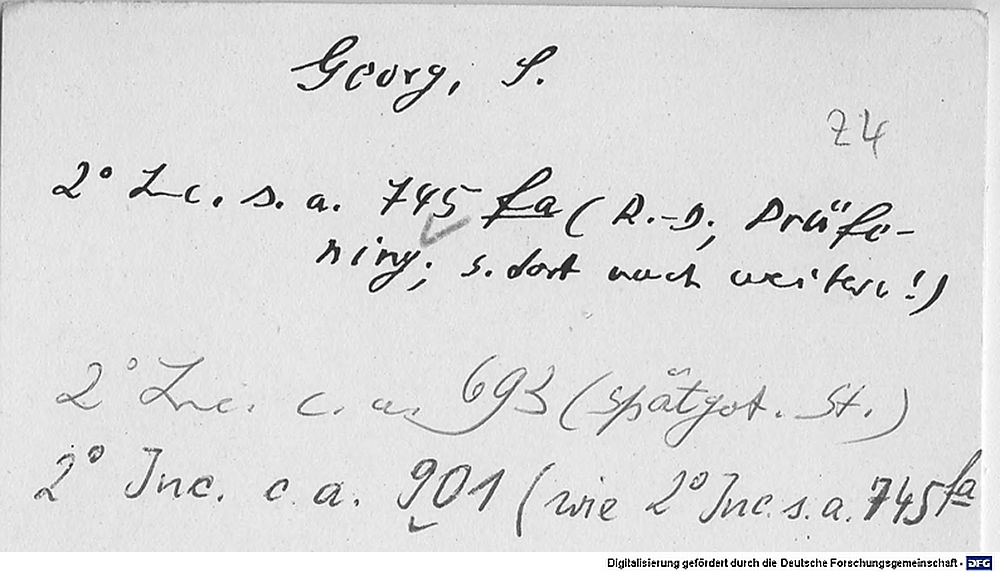 Georg, S.
Z 4
2° Inc. s. a. 745 fa (R.-D.; Prüfe-
ning; s. dort auch weitere!)
2° Inc. c. a. 693 (spätgot. St.)
2° Inc. c. a. 901 (wie 2° Inc. s. a. 745 fa
Digitalisierung gefördert durch die Deutsche Forschungsgemeinschaft - DFG